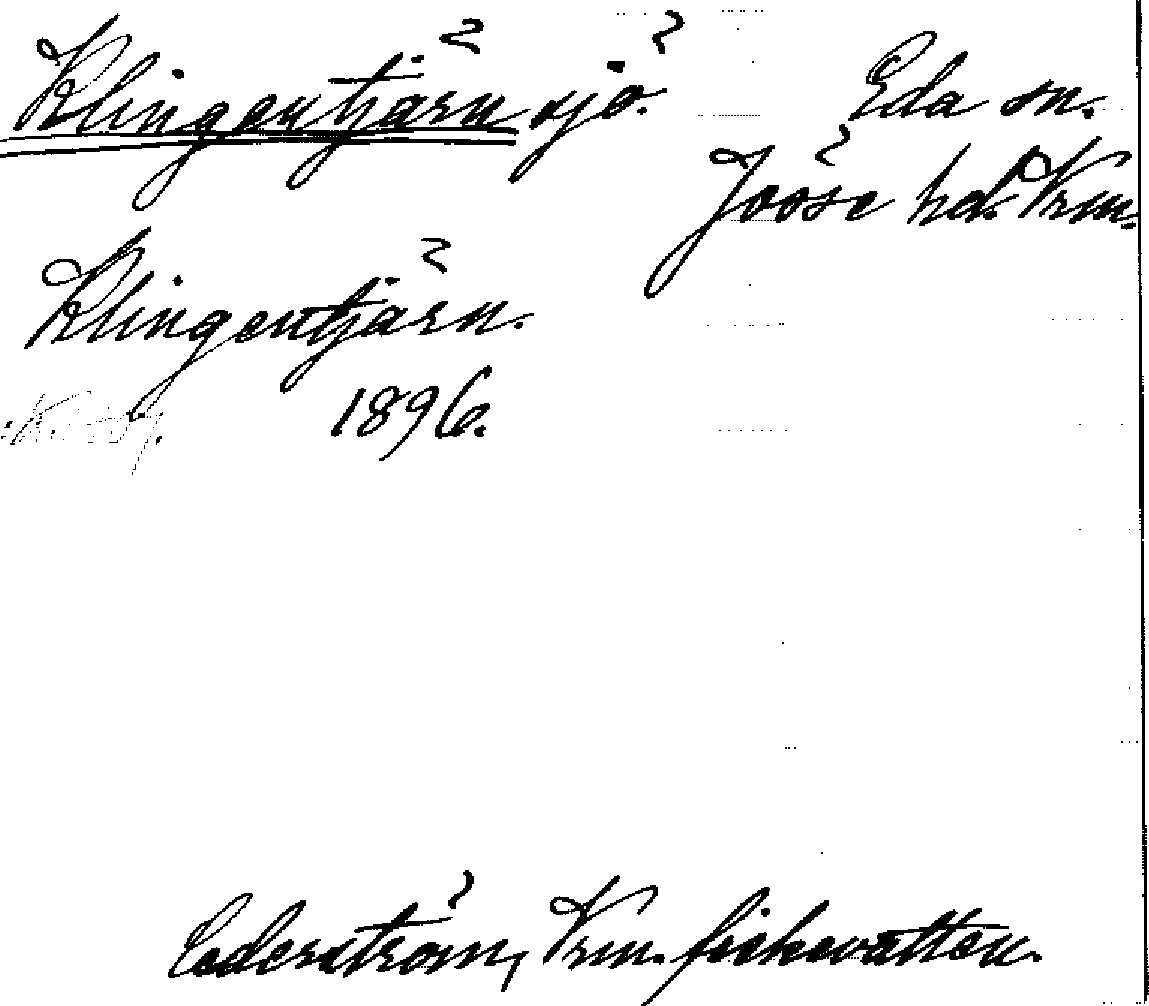 Klingentjärn sjö. Eda sn.
Jösse hd. Vrm.
Klingentjärn.
1896.
Cederström, Vrm. fiskevatten.